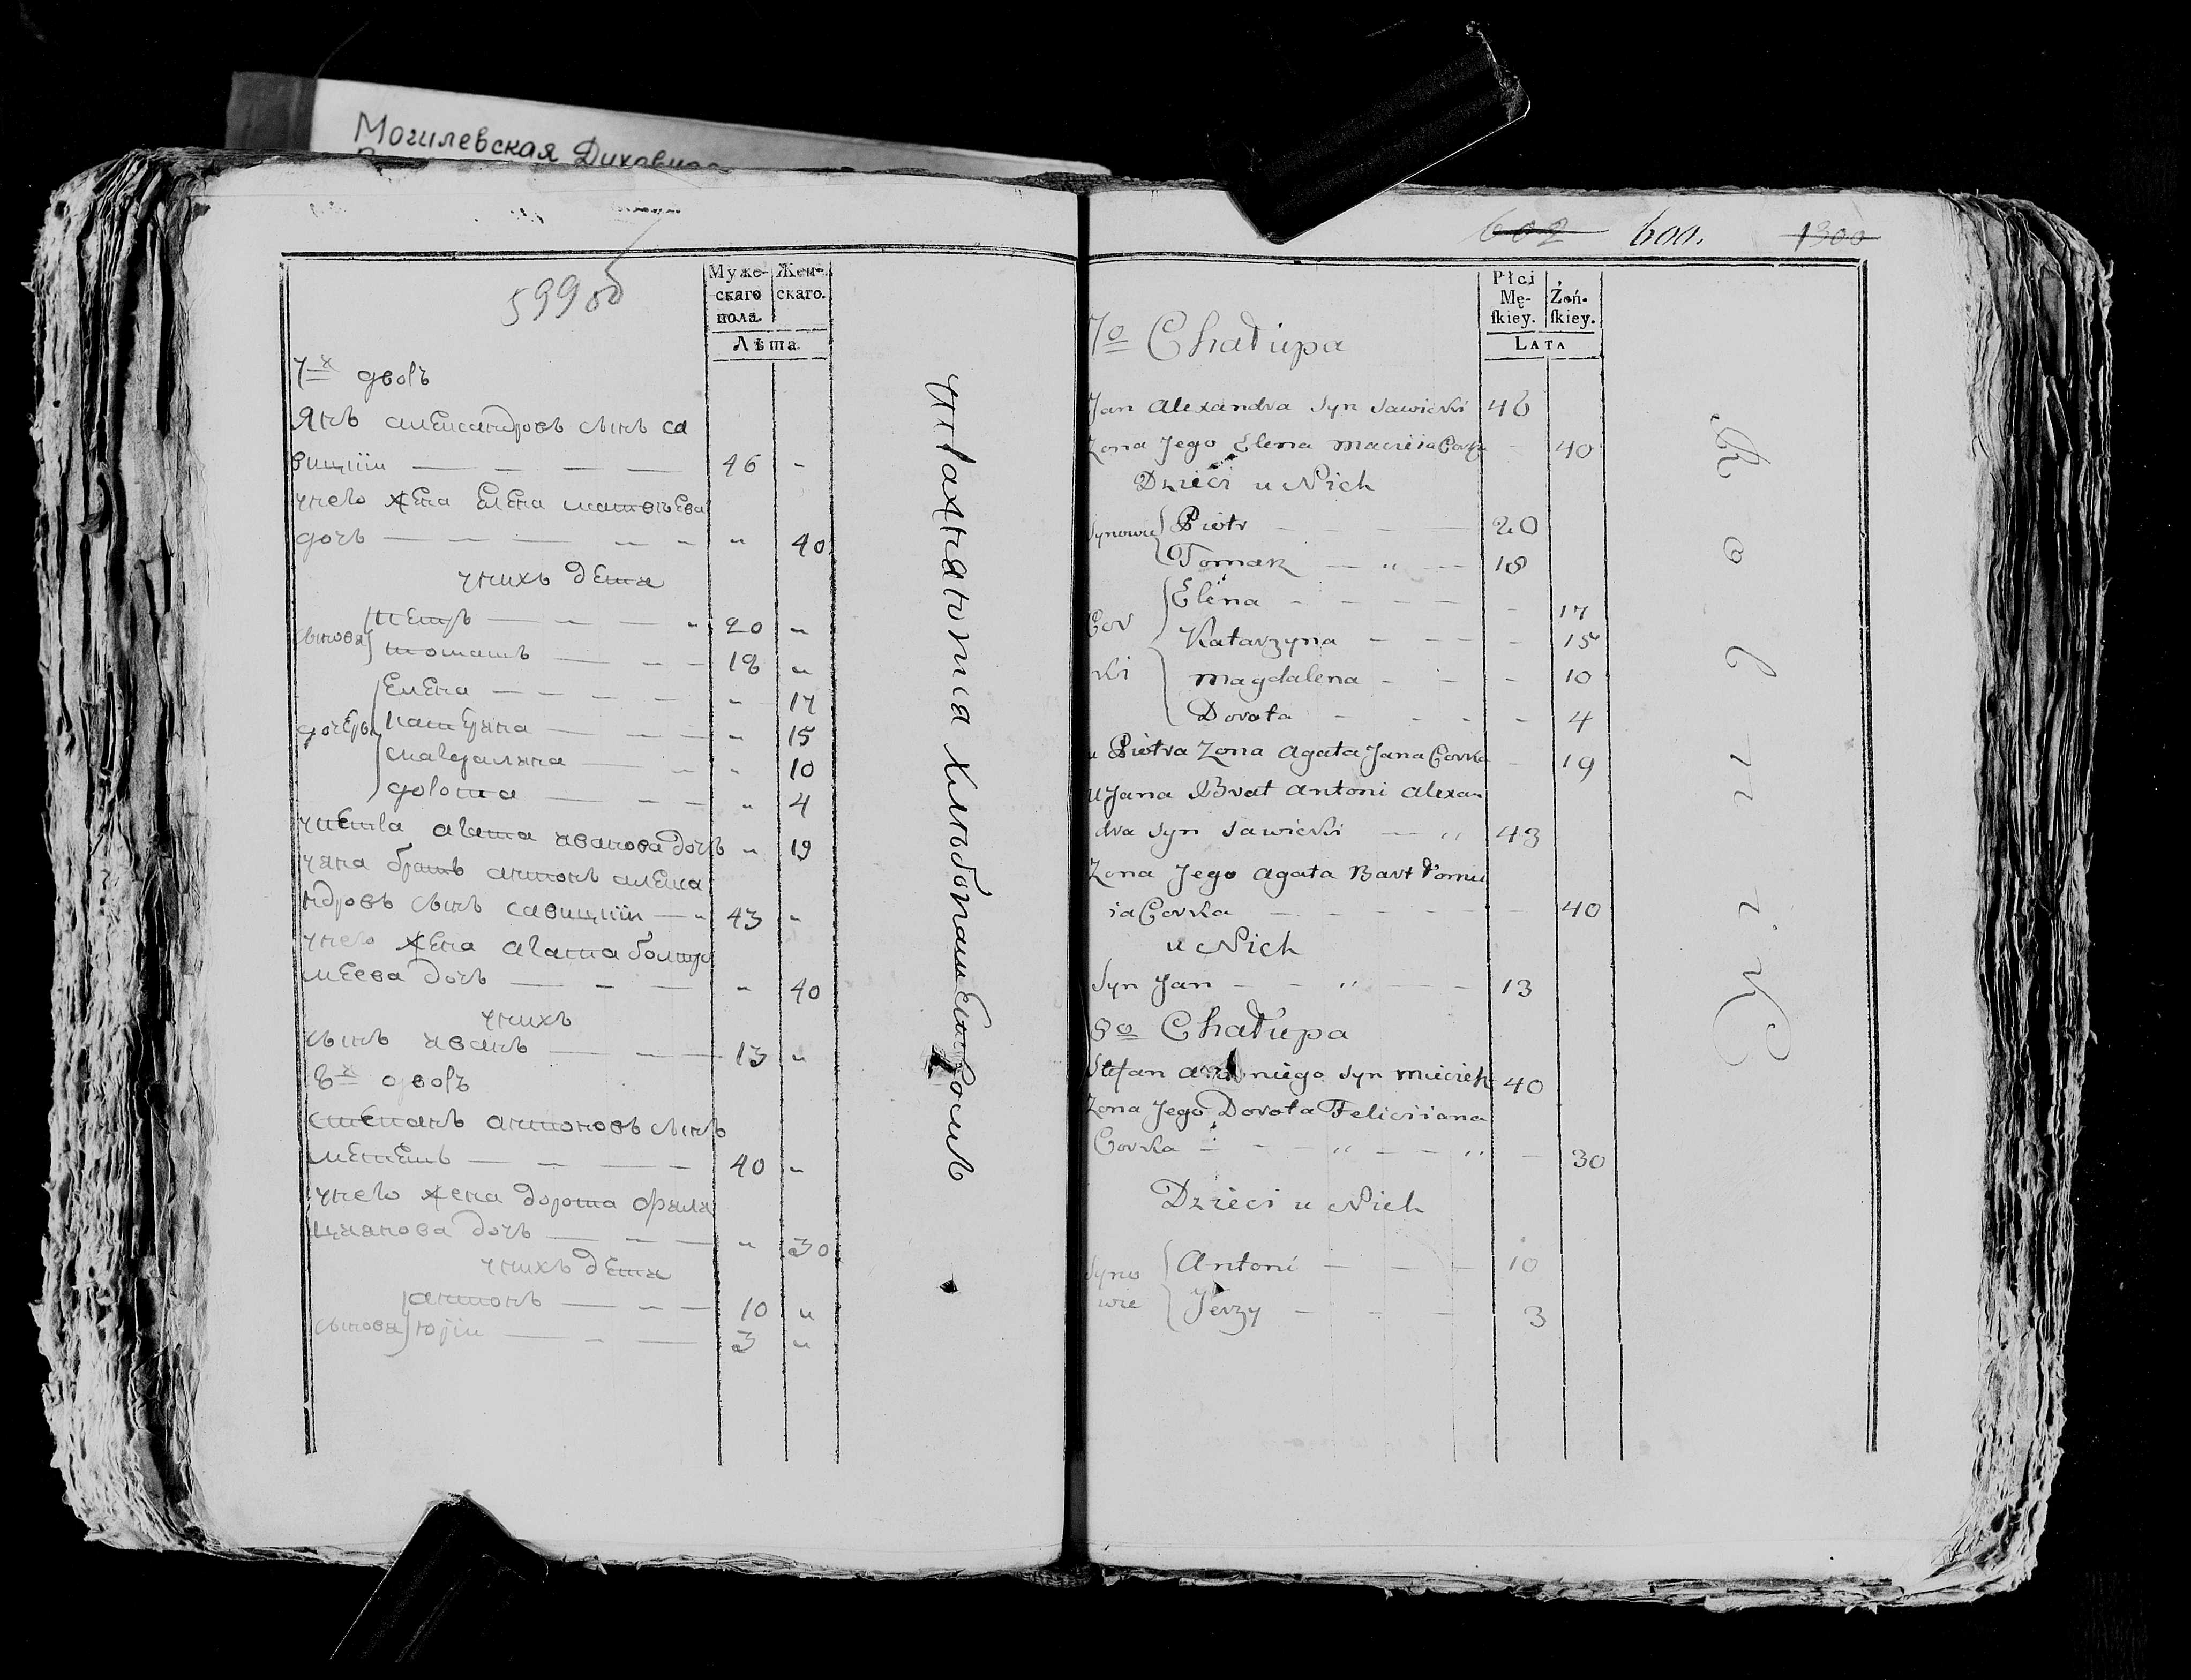 Могилевская Духовная
599об
Муже-
скаго
пола.
Жен-
скаго.
Лѣта.
7х дворъ
Янъ александровъ сынъ са
вицкiи — — — — 46 „
унего жена Елена матвѣева
дочь — — — „ 40
унихъ дети
сынова
Петръ — — „ 20 „
томашъ — — 18 „
дочерь
Елена — — — „ 17
катеряна — — — „ 15
магдаляна — — „ 10
дорота — — „ 4
упетра агата иванова дочь „ 19
уяна братъ антонъ алекса
ндровъ сынъ савицкiи — „ 43 „
унего жена агата болтро
меева дочь — — — „ 40
унихъ
сынъ иванъ — — — 13 „
8х дворъ
степанъ антоновъ сынъ
— — — — 40 „
унего жена дорота филя
циянова дочь — — — „ 30
унихъ дети
сынова
антонъ — — — 10 „
юрiи — — — 3 „
602 600. 1300
Płci
Mę-
ſkiey.
Żeń-
ſkiey.
LATA
7o Chałupa
Jan Alexandra Syn Sawicki 46
Zona Jego Elena Macieia Corka - 40
Dzieci u Nich
Synowie
Piotr — — — — 20
Tomaz — „ — 18
Cor
ki
Elena - - - - - 17
Katarzyna - - - - 15
Magdalena - - - 10
Dorota - - - - - 4
u Piotra Zona Agata Jana Corka - 19
u Jana Brat Antoni Alexan
dra Syn Sawicki — „ 43
Zona Jego Agata Bartłomie
ia Corka - - - - - - 40
u Nich
Syn Jan - - „ — - 13
8o Chałupa
Stefan Antoniego Syn 40
Zona Jego Dorota Feliciiana
Corka - - - „ - - „ - 30
Dzieci u Nich
Syno
wie
Antoni - - - 10
Jerzy - - - - 3
Rolnik